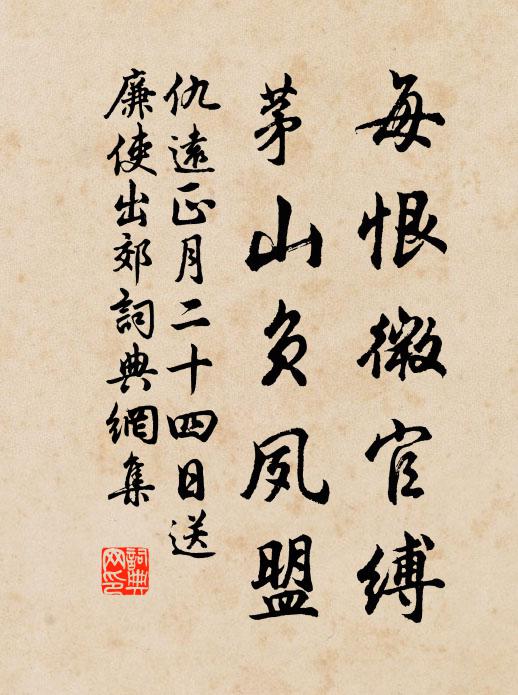 每恨微官縛
茅山負夙盟
仇遠正月二十四日送
廉使出郊詞典網集
詞典网印